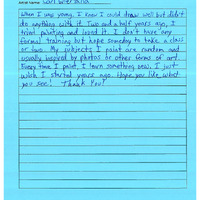 Artist Name: Carl
When I was young, I knew I could draw well but didn't
do anything with it. Two and a half years ago, I
tried painting and loved it. I don't have any
formal training but hope someday to take a class
or two. My subjects I paint are random and
usually inspired by photos or other forms of art.
Every time I paint, I learn something new. I just
wish I started years ago. Hope you like what
you see! Thank You!